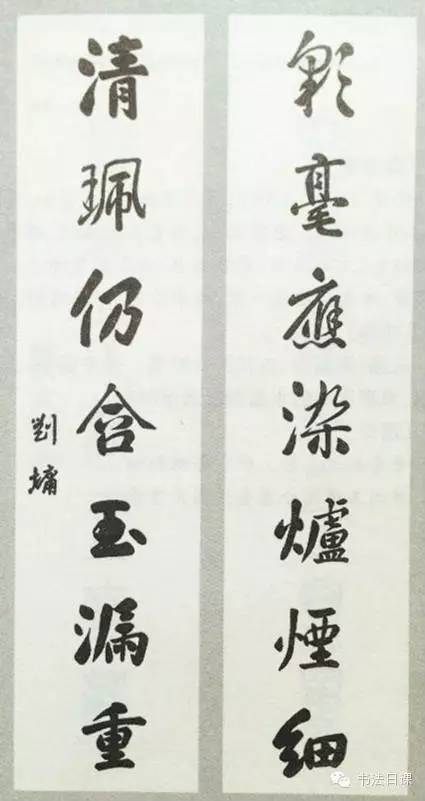 彩毫應染爐煙細
清珮仍含玉漏重
劉墉
书法日课